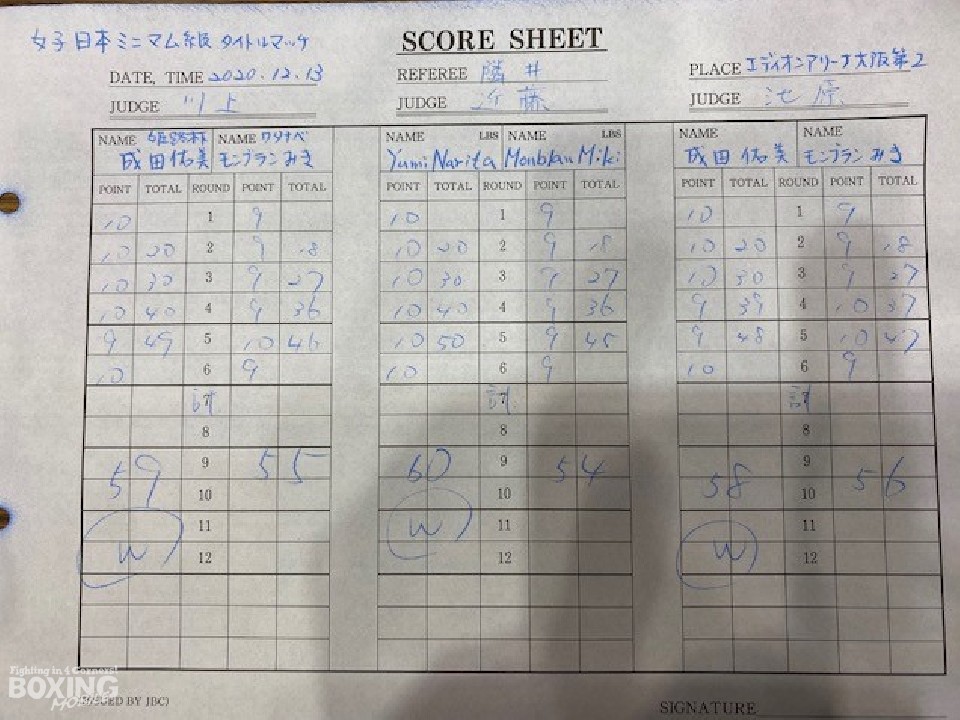 女子日本ミニマム級 タイトルマッチ
SCORE SHEET
DATE, TIME 2020.12.13
REFEREE 隣井
PLACE エディオンアリーナ大阪第2
JUDGE 川上
JUDGE 近藤
JUDGE 池原
NAME NAME ワタナベ NAME LBS NAME LBS NAME NAME
成田佑美 モンブランみき Yumi Narita Monblan Miki 成田佑美 モンブランみき
POINT TOTAL ROUND POINT TOTAL POINT TOTAL ROUND POINT TOTAL POINT TOTAL ROUND POINT TOTAL
10 1 9 10 1 9 10 1 9
10 20 2 9 18 10 20 2 9 18 10 20 2 9 18
10 30 3 9 27 10 30 3 9 27 10 30 3 9 27
10 40 4 9 36 10 40 4 9 36 9 39 4 10 37
9 49 5 10 46 10 50 5 9 45 9 48 5 10 47
10 6 9 10 6 9 10 6 9
計 計 計
8 8 8
59 9 55 60 9 54 9
10 10 58 10 56
W 11 W 11 11
12 12 W 12
Fighting in 4 Corners!
BOXING
ISSUED BY JBC)
SIGNATURE